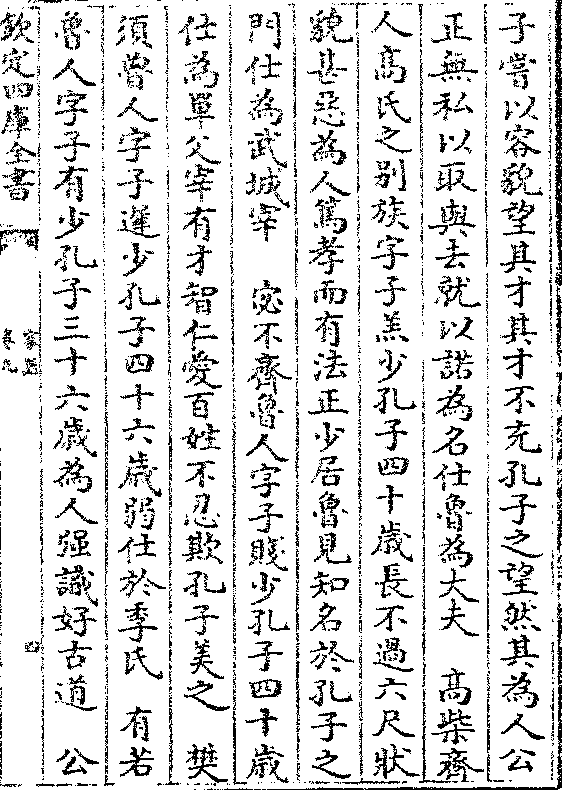 子嘗以容貌望其才其才不充孔子之望然其為人公
正無私以取與去就以諾為名仕魯為大夫　高柴齊
人高氏之别族字子羔少孔子四十歲長不過六尺狀
貌甚惡為人篤孝而有法正少居魯見知名於孔子之
門仕為武城宰　宓不齊魯人字子賤少孔子四十歲
仕為單父宰有才智仁愛百姓不忍欺孔子美之　樊
須魯人字子遲少孔子四十六歲弱仕於季氏　有若
魯人字子有少孔子三十六歲為人强識好古道　公
欽定四庫全書
家語
卷九
四